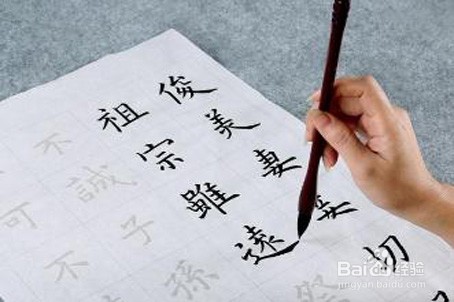 俊美妻妾切
祖宗雖遠祭
不誠子孫
可不
Baidu经验
jingyan.baidu.com